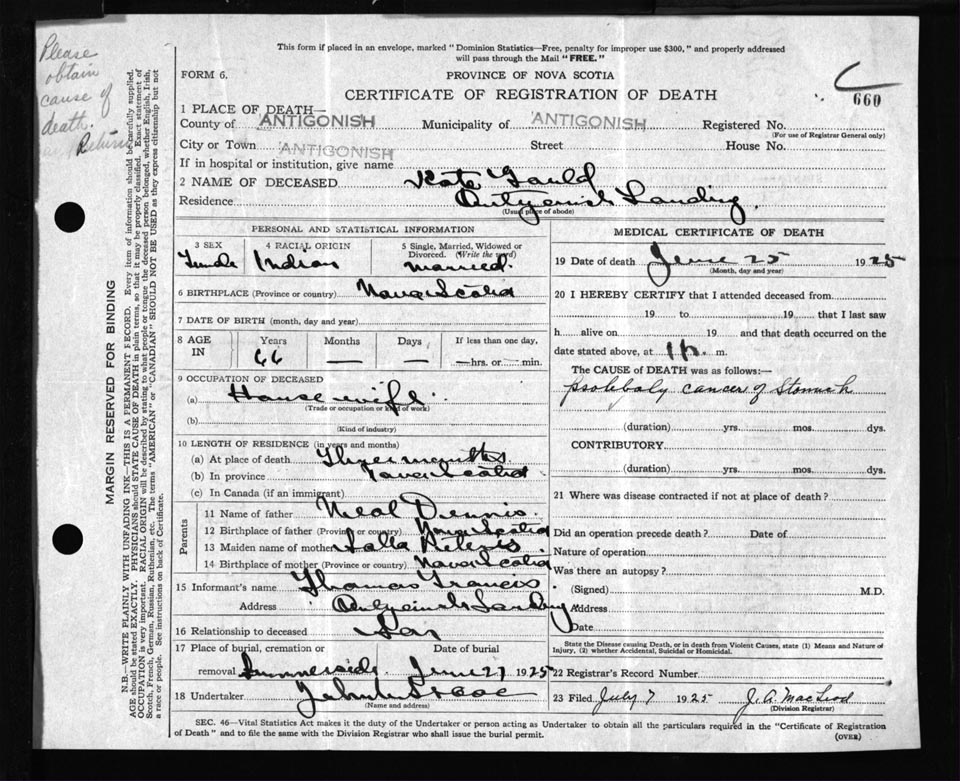 Please
obtain
cause of
death.
Return
This form if placed in an envelope, marked "Dominion Statistics—Free, penalty for improper use $300," and properly addressed
will pass through the Mail "FREE."
FORM 6.
PROVINCE OF NOVA SCOTIA
CERTIFICATE OF REGISTRATION OF DEATH
660
1 PLACE OF DEATH—
County of ANTIGONISH Municipality of ANTIGONISH Registered No.
(For use of Registrar General only)
City or Town ANTIGONISH Street House No.
If in hospital or institution, give name
2 NAME OF DECEASED Kate Gould
Residence Antigonish Landing.
(Usual place of abode)
PERSONAL AND STATISTICAL INFORMATION
3 SEX 4 RACIAL ORIGIN 5 Single, Married, Widowed or
Divorced. (Write the word)
Female Indian Married.
6 BIRTHPLACE (Province or country) Nova Scotia
7 DATE OF BIRTH (month, day and year)
8 AGE IN Years Months Days If less one day,
66 — — —hrs. or min.
9 OCCUPATION OF DECEASED
(a) House wife
(Trade or occupation or kind of work)
(b)
(Kind of industry)
10 LENGTH OF RESIDENCE (in years and months)
(a) At place of death Three months
(b) In province Nova Scotia
(c) In Canada (if an immigrant)
Parents
11 Name of father Neal Dennis.
12 Birthplace of father (Province or country) Nova Scotia
13 Maiden name of mother
14 Birthplace of mother (Province or Country) Nova Scotia
15 Informant's name Thomas Francis
Address Antigonish Landing
16 Relationship to deceased Son
17 Place of burial, cremation or Date of burial
removal Summerside June 27 1925
18 Undertaker John
(Name and address)
MEDICAL CERTIFICATE OF DEATH
19 Date of death June 25 1925
(Month, day and year)
20 I HEREBY CERTIFY that I attended deceased from
19 to 19 that I last saw
h alive on 19 and that death occurred on the
date stated above, at m.
The CAUSE of DEATH was as follows:—
probebaly cancer of Stomach
(duration) yrs. mos. dys.
CONTRIBUTORY
(duration) yrs. mos. dys.
21 Where was disease contracted if not at place of death?
Did an operation precede death? Date of
Nature of operation
Was there an autopsy?
(Signed) M.D.
Address
Date
State the Disease causing Death, or in death from Violent Causes, state (1) Means and Nature of
Injury, (2) whether Accidental, Suicidal or Homicidal.
22 Registrar's Record Number
23 Filed July 7 1925 J. A. MacLeod
(Division Registrar)
SEC. 46—Vital Statistics Act makes it the duty of the Undertaker or person acting as Undertaker to obtain all the particulars required in the "Certificate of Registration
of Death" and to file the same with the Division Registrar who shall issue the burial permit.
(OVER)
MARGIN RESERVED FOR BINDING
N.B.—WRITE PLAINLY WITH UNFADING INK—THIS IS A PERMANENT RECORD. Every item of information should be carefully supplied.
AGE should be stated EXACTLY. PHYSICIANS should STATE CAUSE OF DEATH in plain terms, so that it may be properly classified. Exact statement of
OCCUPATION is very important. RACIAL ORIGIN will be described by stating to what people or tongue the deceased person belonged, whether English, Irish,
Scotch, French, German, Russian, Ruthenian, etc. The terms "AMERICAN" or "CANADIAN" SHOULD NOT BE USED as they express citizenship but not
a race or people. See instructions on back of Certificate.